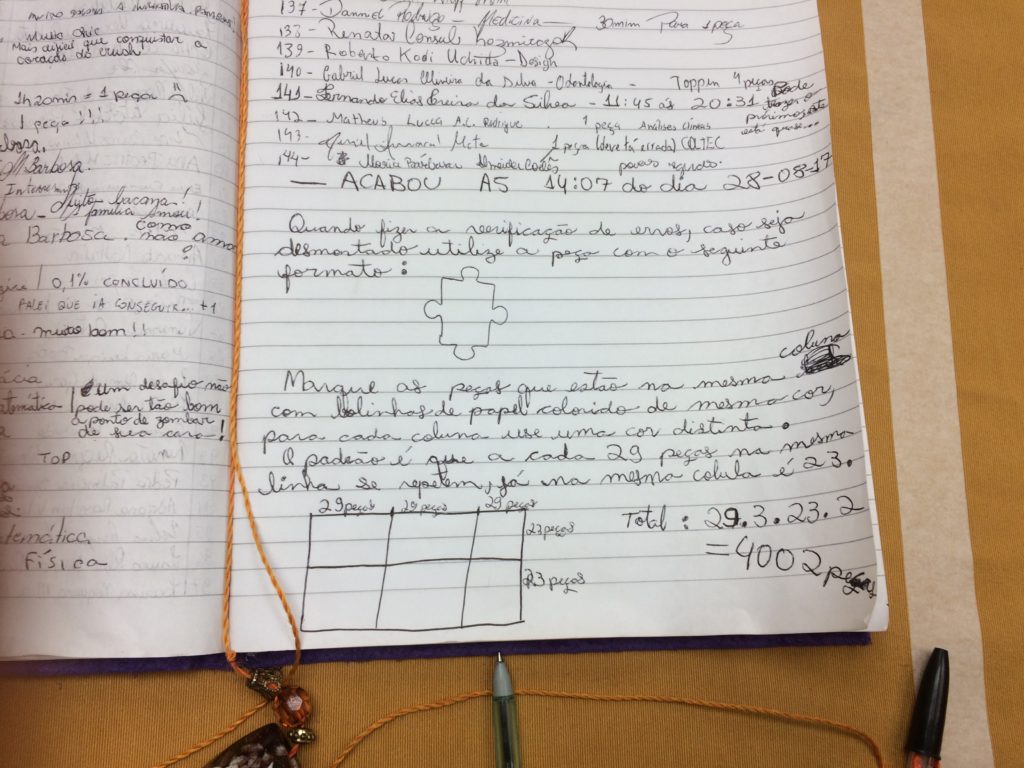 Muito Chic
Mais difícil que conquistar a
coração do crush
1h20min = 1 peça
1 peça !!!
Barbosa.
Barbosa.
Muito bacana!
família amou!
Barbosa. Como não amar?
0,1% CONCLUÍDO
FALEI QUE IA CONSEGUIR... +1
muito bom!!
Um desafio não
pode ser tão bom
a ponto de zombar
de sua cara!
TOP
temática
FÍSICA
137- Danniel Rodrigo - Medicina 30mim Para 1 peça
138- Renata Consul
139- Roberto Kodi Uchida - Design
140- Gabril Lucas Oliveira da Silva - Odontologia - Toppen 4 peças
141- Fernando Elias - 11:45 às 20:31
142- Matheus Lucca A.C. Rodrigue . 1 peça Análises Clínicas
143- 1 peça (deve tá errada) COLTEC
144- Maria Bárbara
— ACABOU AS 14:07 do dia 28-08-17
Quando fizer a verificação de erros, caso seja
desmontado utilize a peça com o seguinte
formato:
Marque as peças que estão na mesma coluna
com bolinhas de papel colorido de mesma cor,
para cada coluna use uma cor distinta.
O padrão é que a cada 29 peças na mesma
linha se repetem, já na mesma colula é 23.
29 peças 29 peças 29 peças
23 peças
23 peças
Total : 29.3.23.2
= 4002 peças